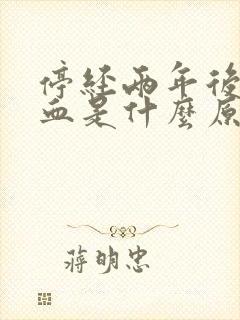 停經兩年後
血是什麼原
蔣明忠